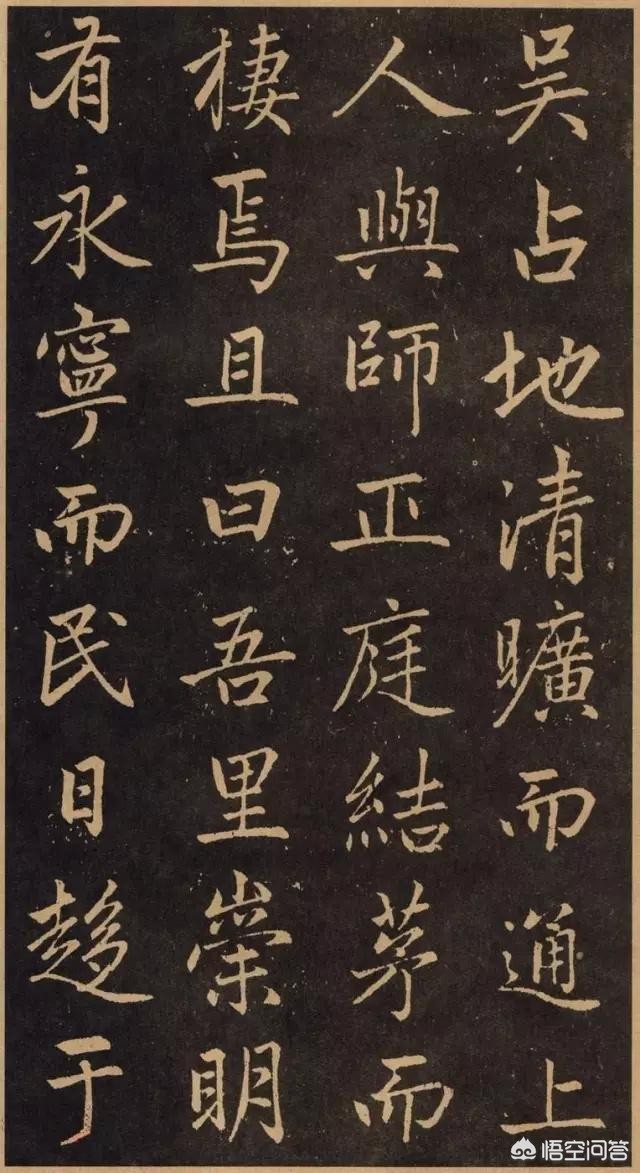 吴占地清曠而通上
人與師正庭結茅而
棲焉且曰吾里崇明
有永寧而民日趍于
悟空问答